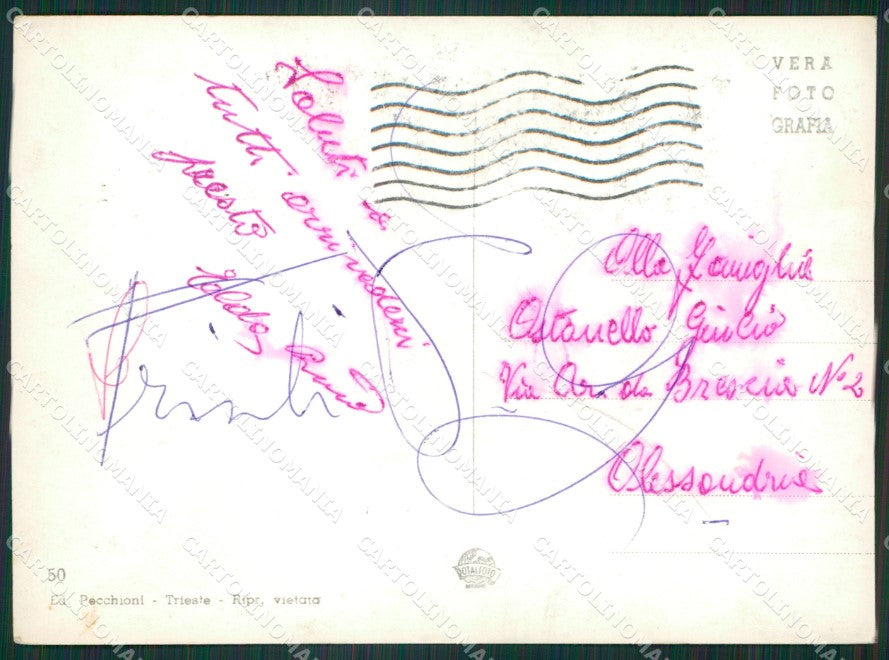 VERA
FOTO
GRAFIA
Saluti a
tutti arrivederci
presto
Aldo,
Alla Famiglia
Ostanello Giulio
Via Ar. da Brescia N° 2
Alessandria
50
Ed. Pecchioni - Trieste - Ripr. vietata
TOTALFOTO
CARTOLINOMANIA